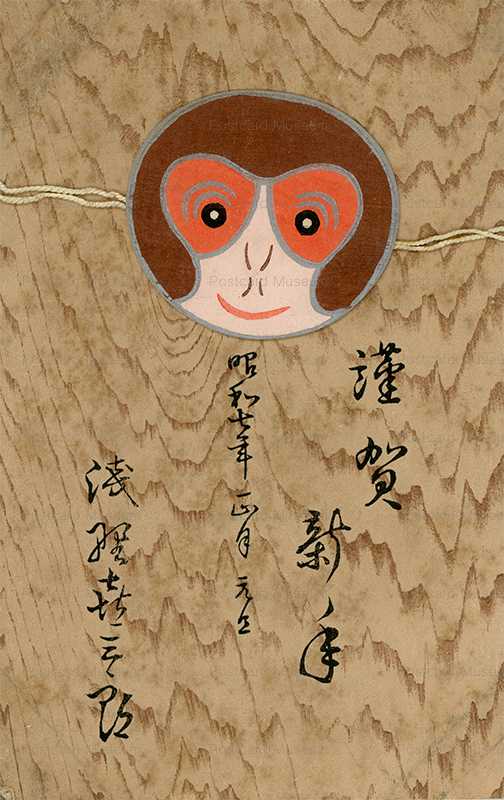 謹賀
新年
昭和七年 一正月 元旦
浅野喜三郎
Postcard Museum
Postcard Museum